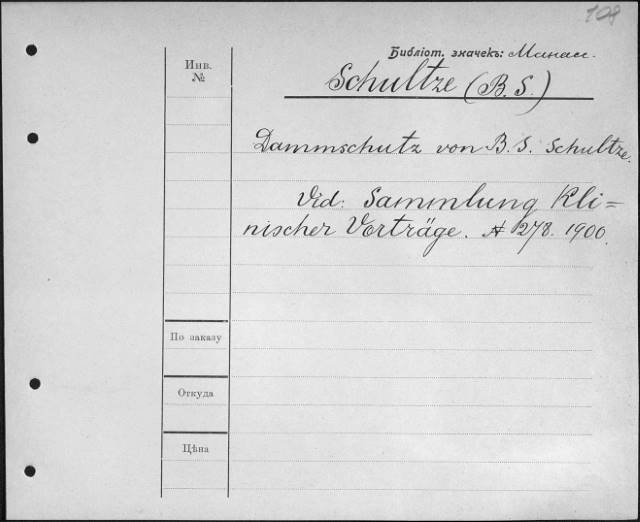 109
Библіот. значекъ: Манас.
Инв.
№
Schultze (B. S.)
Dammschutz von B. S. Schultze.
Vid: Sammlung Kli=
nischer Vorträge. № 278. 1900.
По заказу
Откуда
Цѣна